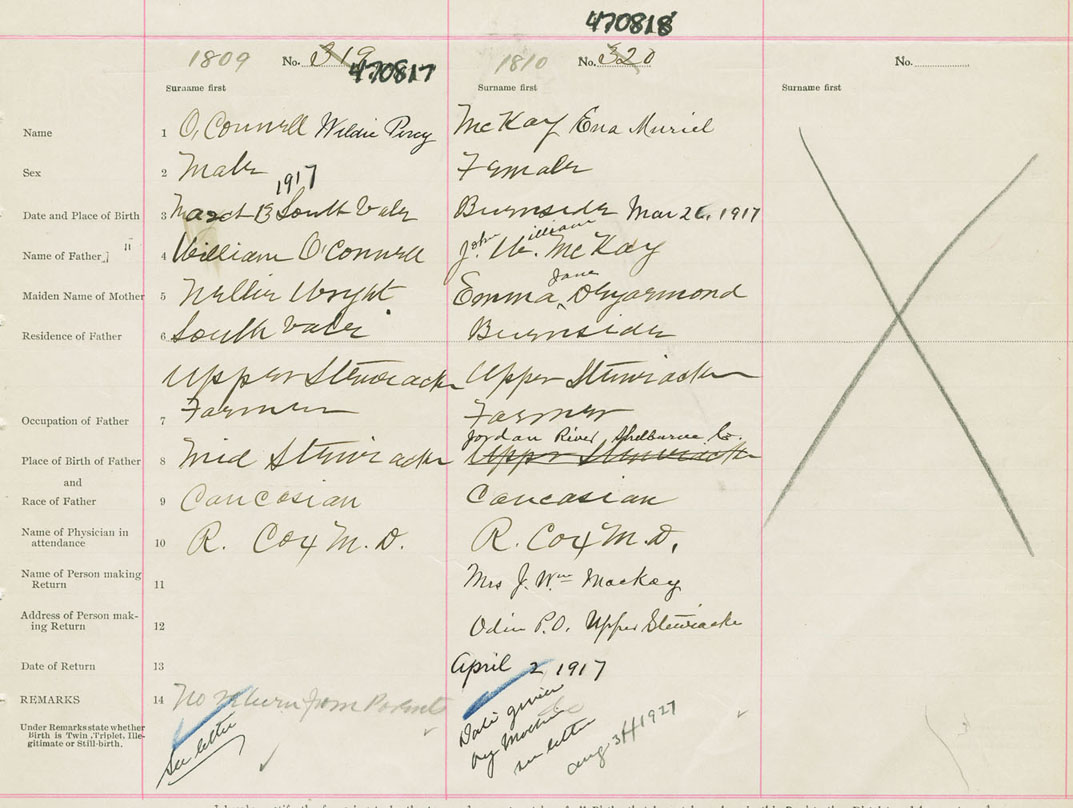 470818
1809 No. 319 470817
1810 No. 320
No.
Surname first Surname first Surname first
Name 1 O'Connell Wildie Percy McKay Ena Muriel
Sex 2 Male Female
1917
Date and Place of Birth 3 March 13 South Vale Burnside Mar 26, 1917
Name of Father 4 William O'Connell John William McKay
Maiden Name of Mother 5 Nellie Wright Emma Jane DeYarmond
Residence of Father 6 South Vale Burnside
Upper Stewiacke Upper Stewiacke
Occupation of Father 7 Farmer Farmer
Jordan River, Shelburne Co.
Place of Birth of Father 8 Mid Stewiacke Upper Stewiacke
and
Race of Father 9 Caucasian Caucasian
Name of Physician in
attendance 10 R. Cox M.D. R. Cox M.D.
Name of Person making
Return 11 Mrs J. Wm Mackay
Address of Person mak-
ing Return 12 Odin P.O. Upper Stewiacke
Date of Return 13 April 2 1917
REMARKS 14 No Return from Parents
Under Remarks state whether
Birth is Twin, Triplet, Ille-
gitimate or Still-birth.
See letter
Date given
by Mother
see letter
Aug 3/1927